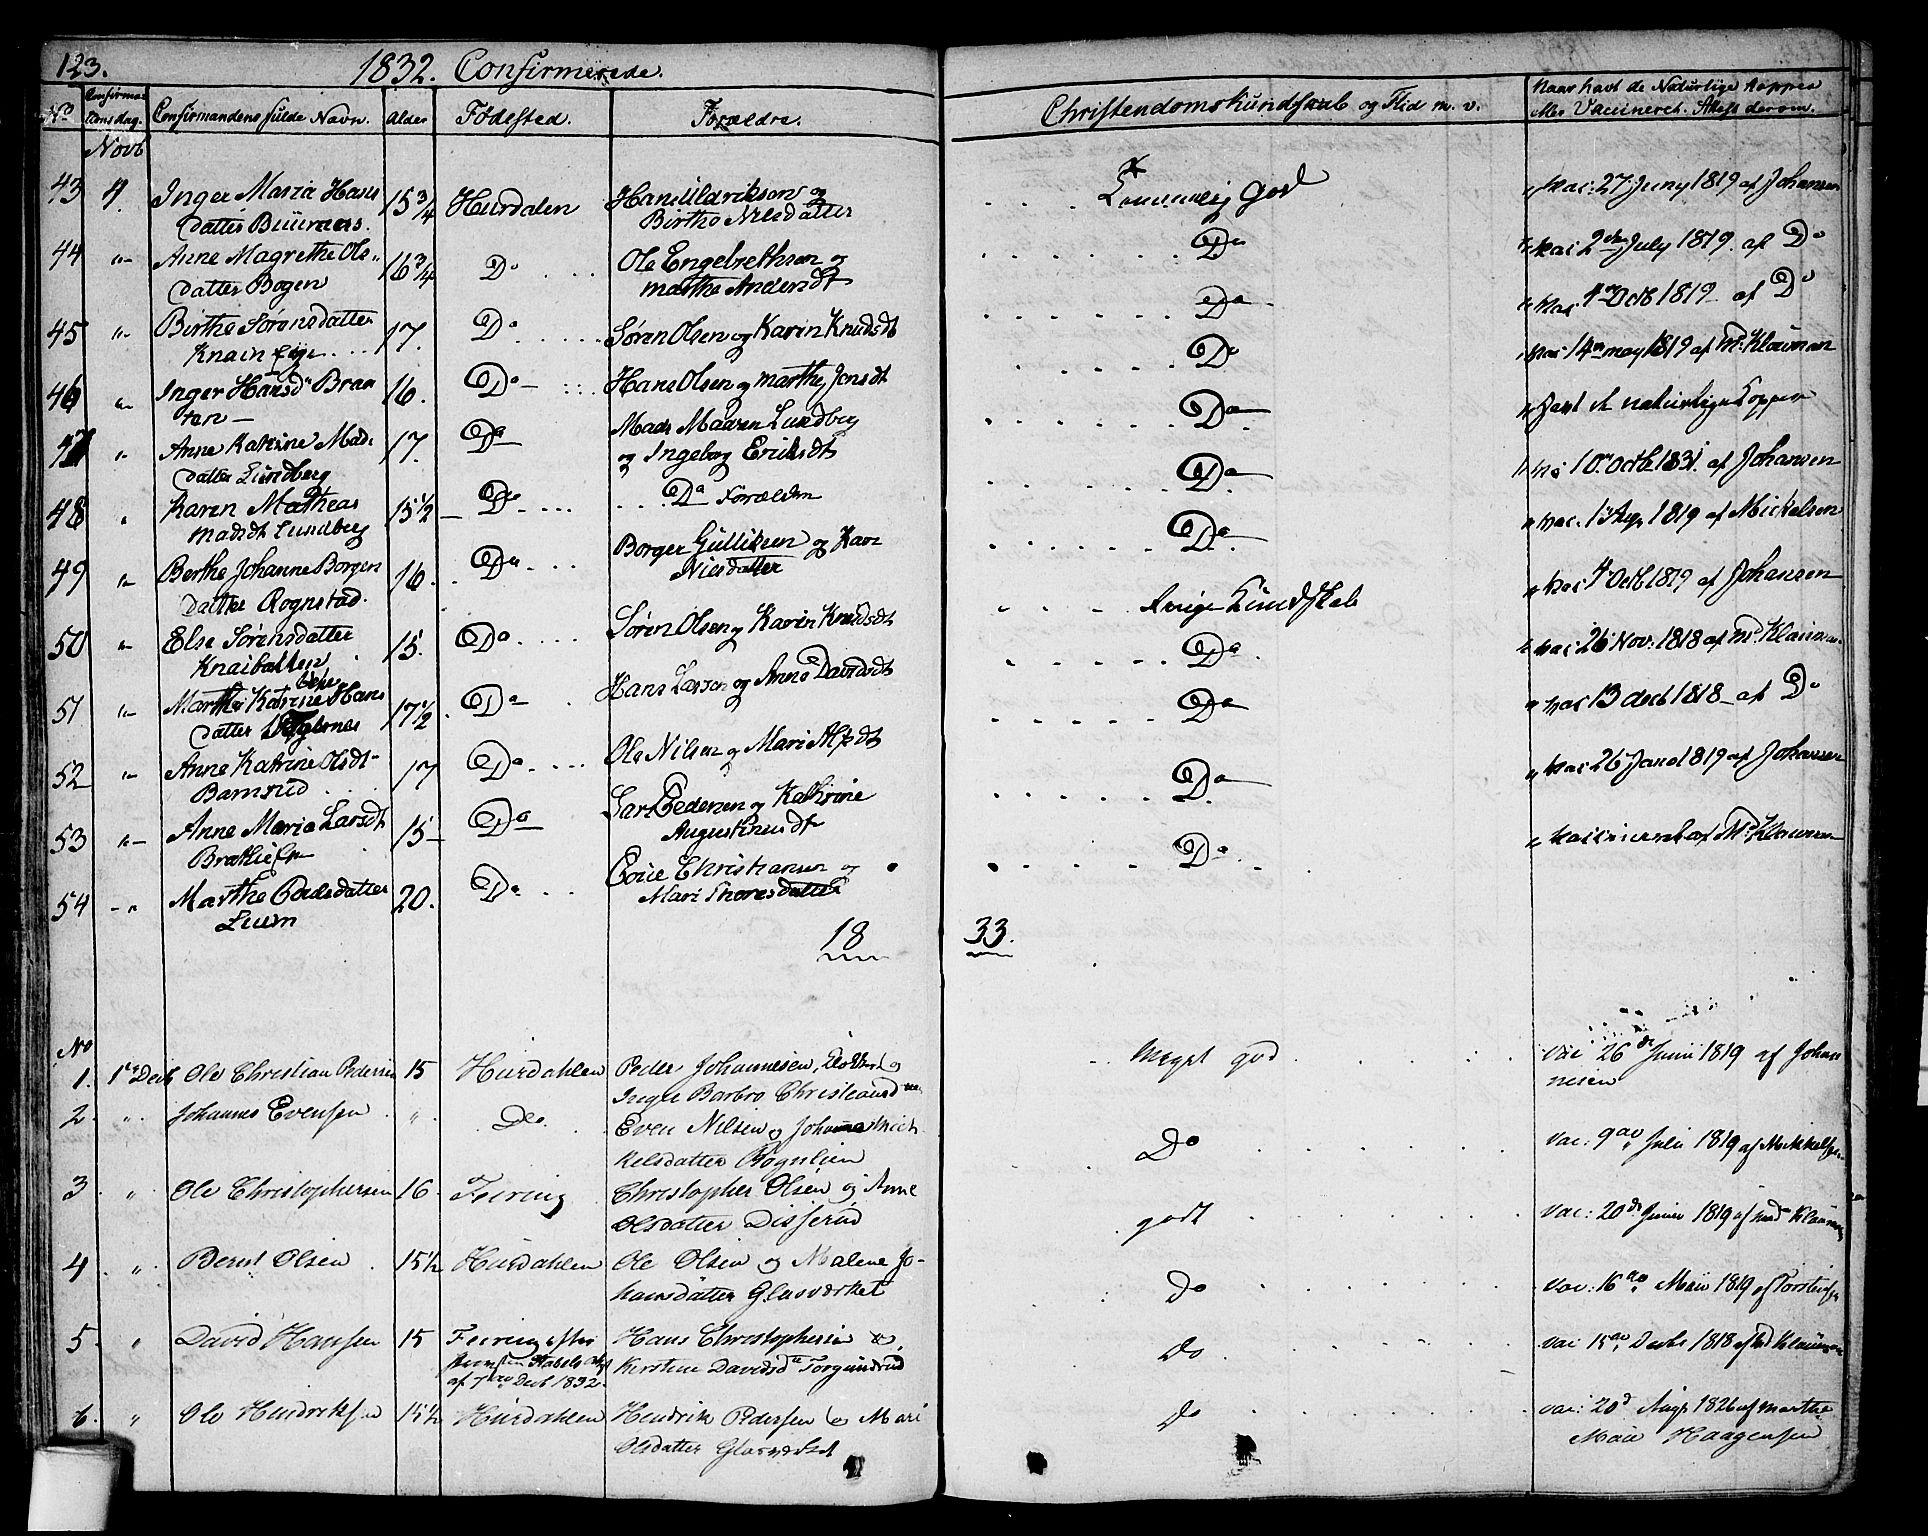 123. 1832. Confirmerede.
No Confirmations dag. Confirmandens fulde Navn. Alder Födested. Forældre. Christendomskundskab og Flid m. v. Naar havt de Naturlige Kopper
eller Vaccineret. Attest derom.
Novb
43 4. Inger Maria Hans 15 3/4 Hurdalen Hans Uldrikson og Temmelig god vac: 27 Juny 1819 af Johansen
datter Birthe Nilsdatter
44 " Anne Magrethe Ols 16 3/4 Do Ole Engebrethsen og Do vac: 2den July 1819. af Do
datter Bogen Marthe Andersdt
45 " Birthe Sörensdatter 17. Do Sören Olsen og Karin Knudsdt Do vac 4 Octb 1819 af Do
Knain eje
46 " Inger Hansd Braa 16. Do Hans Olsen og Marthe Jensdt Do vac: 14 may 1819 af Md Klouman
ten
47 " Anne Katrine Mads 17. Do Mads Madsen Lundberg Do havt de naturlige Kopper
datter Lundberg og Ingeborg Eriksdt
48 " Karen Mathea 15 1/2 Do Do Forældre Do vac 10 Octb 1831. af Johansen
Madsdt Lundberg
49 " Berthe Johanne Borger 16. Do Borger Gulliksen og Kari Do vac: 1 Aug 1819 af Mickelsen
datter Rognstad. Nilsdatter
50 " Else Sörensdatter 15. Do Sören Olsen og Karin Knudsdt Ringe Kundskab vac 4 Octb 1819 af Johansen
Knaibakken
51 " Marthe Katrine Hans 17 1/2 Do Hans Larsen og Anne Davidsdt Do vac: 26 Nov: 1818 af Md Klouman
datter
52 " Anne Katrine Olsdt 17 Do Ole Nilsen og Mari Alfsdt Do vac 13 decb 1818 af Do
Bamrud
53 " Anne Maria Larsdt 15 Do Lars Pedersen og Kathrine Do vac: 26 1819 af Johansen
Augustinusdt
54 " Marthe Pedsdatter 20. Do Christiansen og Do vaccineret af Md Klouman
Mari Thoresdatter
18 33.
No
1. 1te Decb Ole Christian Pedersen 15 Hurdahlen Peder Johannesen, og Meget god vac 26de Junii 1819 af Johan
Inger Barbro nesen
2. " Johannes Evensen " Do. Even Nilsen og Johanne Mich Do vac: 9de Julii 1819 af Mikkelsen
kelsdatter Rognlien
3. " Ole Christophersen 16 Feiring Christopher Olsen og Anne godt vac: 20de Junii 1819 af Mad Klouman
Olsdatter Disserud
4 " Bernt Olsen 15 1/2 Hurdahlen Ole Olsen og Malene Jo- do vac: 16de Maii 1819 af Torstensen
hansdatter Glasværket
5. " David Hansen 15 Feiring efter Hans Christophersen og do vac 15de Decbr 1818 af Md Klouman
af 7de Decb 1832. Kirstine Davidsdr Torgundrud
6. " Ole Hendriksen 15 1/2 Hurdahlen Hendrik Pedersen og Mari do vac: 20d Aug 1826 af Marthe
Olsdatter Glasværket Marie Haagensen